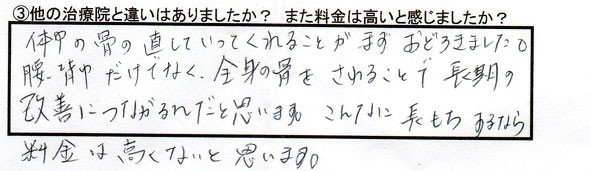 ③他の治療院と違いはありましたか? また料金は高いと感じましたか?
体中の骨の直していってくれることがまずおどろきました。
腰、背中だけでなく、全身の骨をされることで長期の
改善につながるんだと思います。こんなに長もちするなら
料金は高くないと思います。